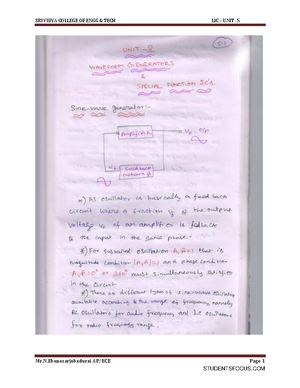 SRIVIDYA COLLEGE OF ENGG & TECH LIC - UNIT -5
UNIT - 5
WAVEFORM GENERATORS
&
SPECIAL FUNCTION IC's
Sine-wave generator:-
Amplifier A
Vo o/p
Vf
Feedback
network β
*) An oscillator is basically a feed back
circuit where a fraction Vf of the output
voltage Vo of an amplifier is fed back
to the input in the same phase.
*) For sustained oscillation that is
magnitude condition and phase condition
= 0° or 360° must simultaneously satisfied
in the circuit
*) There are different types of sine-wave oscillators
available according to the range of frequency namely
RC oscillators for audio frequency and LC oscillators
for radio frequency range.
Mr.N.Ebenesarjebadurai AP/ ECE Page 1
STUDENTSFOCUS.COM